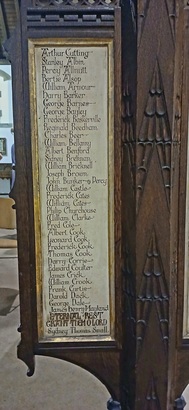 Arthur Cutting
Stanley Allin
Percy Allnutt
Bertie Alsop
William Armour
Harry Barker
George Barnes
George Bayley
Frederick Baskerville
Reginald Beesham
Charles Beer
William Bellamy
Albert Benford
Sidney Bridgman
William Bricknell
Joseph Brown
John Percy
William Castle
Frederick Cates
William Cates
Philip Churchouse
William Clarke
Fred Cole
Albert Cook
Leonard Cook
Frederick Cook
Thomas Cook
Harry Corrie
Edward Coulter
James Crick
William Crook
Frank Curtis
Harold Dack
George Dale
James Henry
ETERNAL REST
GRANT THEM O LORD
Sydney Thomas Small